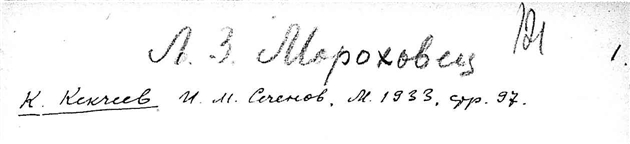 Л. З. Мороховец 121 1.
К. Кекчеев И. М. Сеченов, М. 1933, стр. 97.